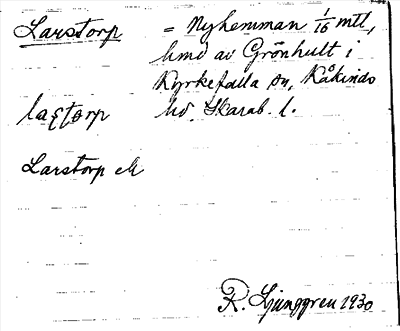 Larstorp = Nyhemman 1/16 mtl,
hmd av Grönhult i
Kyrkefalla sn, Kåkinds
laştorp hd. Skarab. l.
Larstorp ek
R. Ljunggren 1930